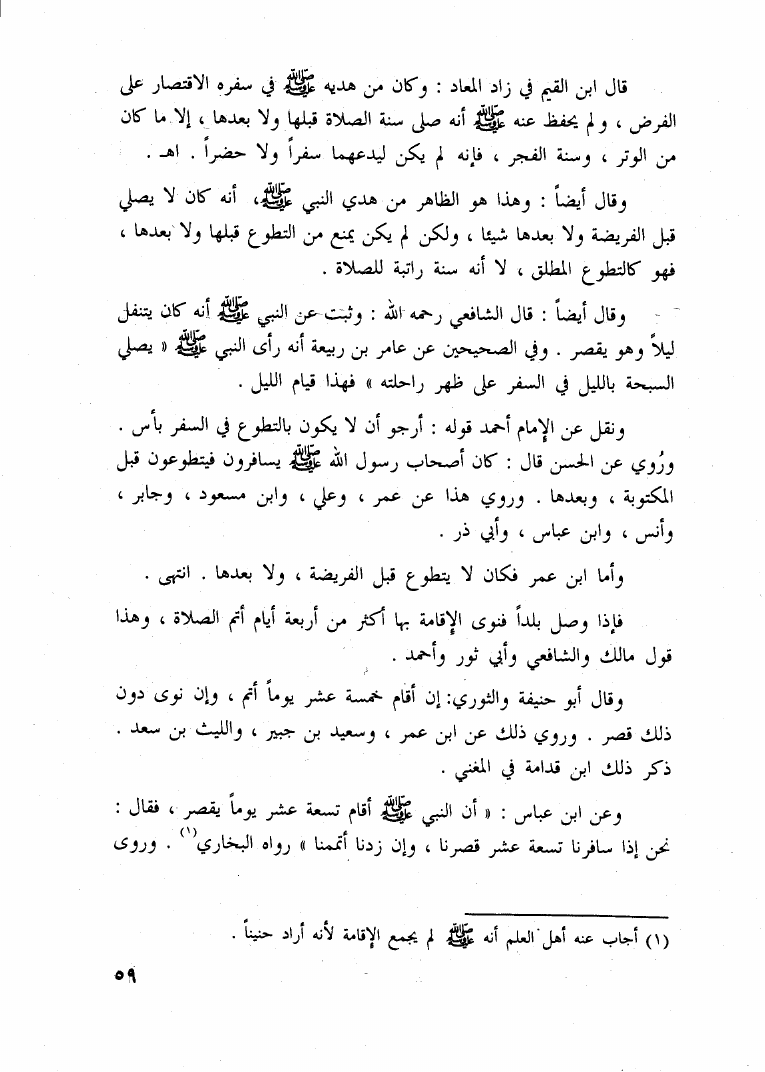 قال ابن القيم في زاد المعاد : وكان من هديه ﷺ في سفره الاقتصار على
الفرض ، ولم يحفظ عنه ﷺ أنه صلى سنة الصلاة قبلها ولا بعدها ، إلا ما كان
من الوتر ، وسنة الفجر ، فإنه لم يكن ليدعهما سفراً ولا حضراً . اهـ .
وقال أيضاً : وهذا هو الظاهر من هدي النبي ﷺ، أنه كان لا يصلي
قبل الفريضة ولا بعدها شيئا ، ولكن لم يكن يمنع من التطوع قبلها ولا بعدها ،
فهو كالتطوع المطلق ، لا أنه سنة راتبة للصلاة .
وقال أيضاً : قال الشافعي رحمه الله : وثبت عن النبي ﷺ أنه كان يتنفل
ليلاً وهو يقصر . وفي الصحيحين عن عامر بن ربيعة أنه رأى النبي ﷺ « يصلي
السبحة بالليل في السفر على ظهر راحلته » فهذا قيام الليل .
ونقل عن الإمام أحمد قوله : أرجو أن لا يكون بالتطوع في السفر بأس .
ورُوي عن الحسن قال : كان أصحاب رسول الله ﷺ يسافرون فيتطوعون قبل
المكتوبة ، وبعدها . وروي هذا عن عمر ، وعلي ، وابن مسعود ، وجابر ،
وأنس ، وابن عباس ، وأبي ذر .
وأما ابن عمر فكان لا يتطوع قبل الفريضة ، ولا بعدها . انتهى .
فإذا وصل بلداً فنوى الإقامة بها أكثر من أربعة أيام أتم الصلاة ، وهذا
قول مالك والشافعي وأبي ثور وأحمد .
وقال أبو حنيفة والثوري: إن أقام خمسة عشر يوماً أتم ، وإن نوى دون
ذلك قصر . وروي ذلك عن ابن عمر ، وسعيد بن جبير ، والليث بن سعد .
ذكر ذلك ابن قدامة في المغني .
وعن ابن عباس : « أن النبي ﷺ أقام تسعة عشر يوماً يقصر ، فقال :
نحن إذا سافرنا تسعة عشر قصرنا ، وإن زدنا أتممنا » رواه البخاري(١) . وروى
(١) أجاب عنه أهل العلم أنه ﷺ لم يجمع الإقامة لأنه أراد حنيناً .
٥٩